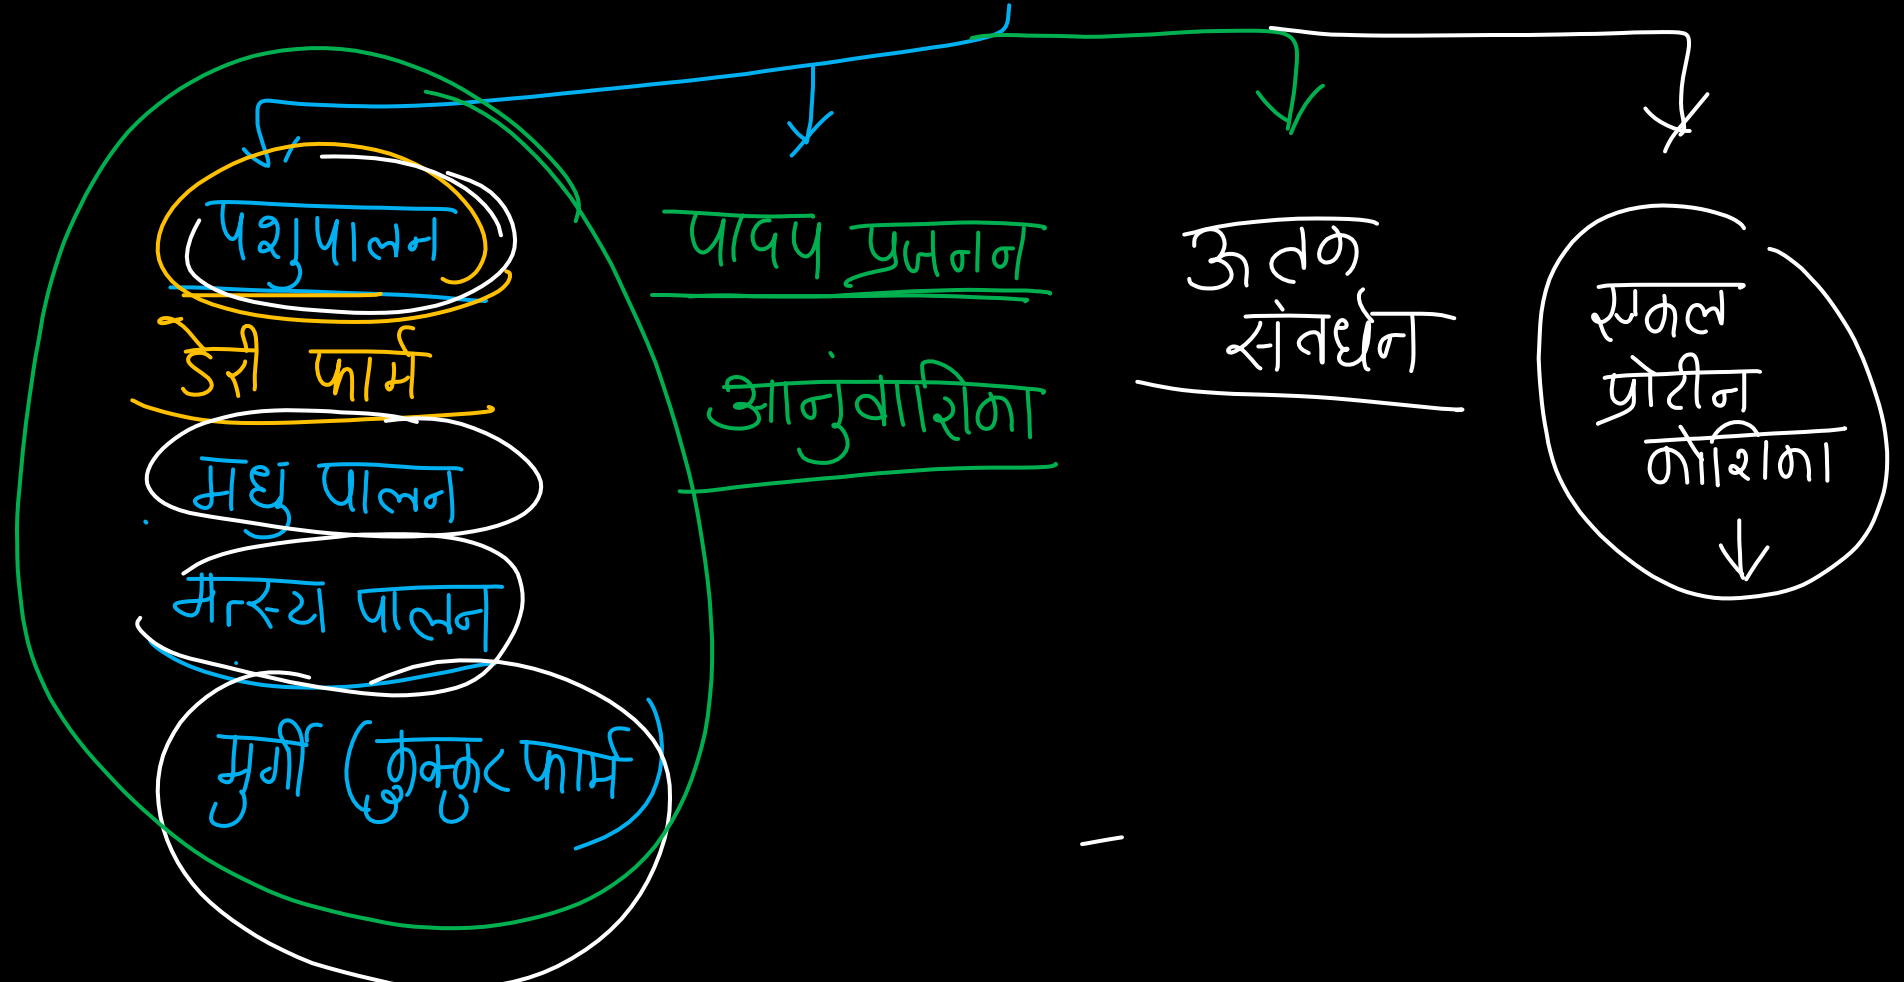 पशुपालन
डेरी फार्म
मधु पालन
मत्स्य पालन
मुर्गी (कुक्कुट फार्म)
पादप प्रजनन
आनुंवाशिका
ऊतक
संवर्धन
एकल
प्रोटीन
कोशिका